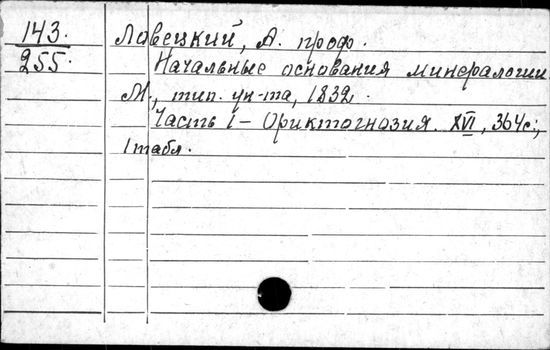 143. Лавецкий, А. проф.
255. Начальные основания минералогии
М., тип. ун-та, 1832.
Часть I – Ориктогнозия. XVI, 364с.,
1табл.